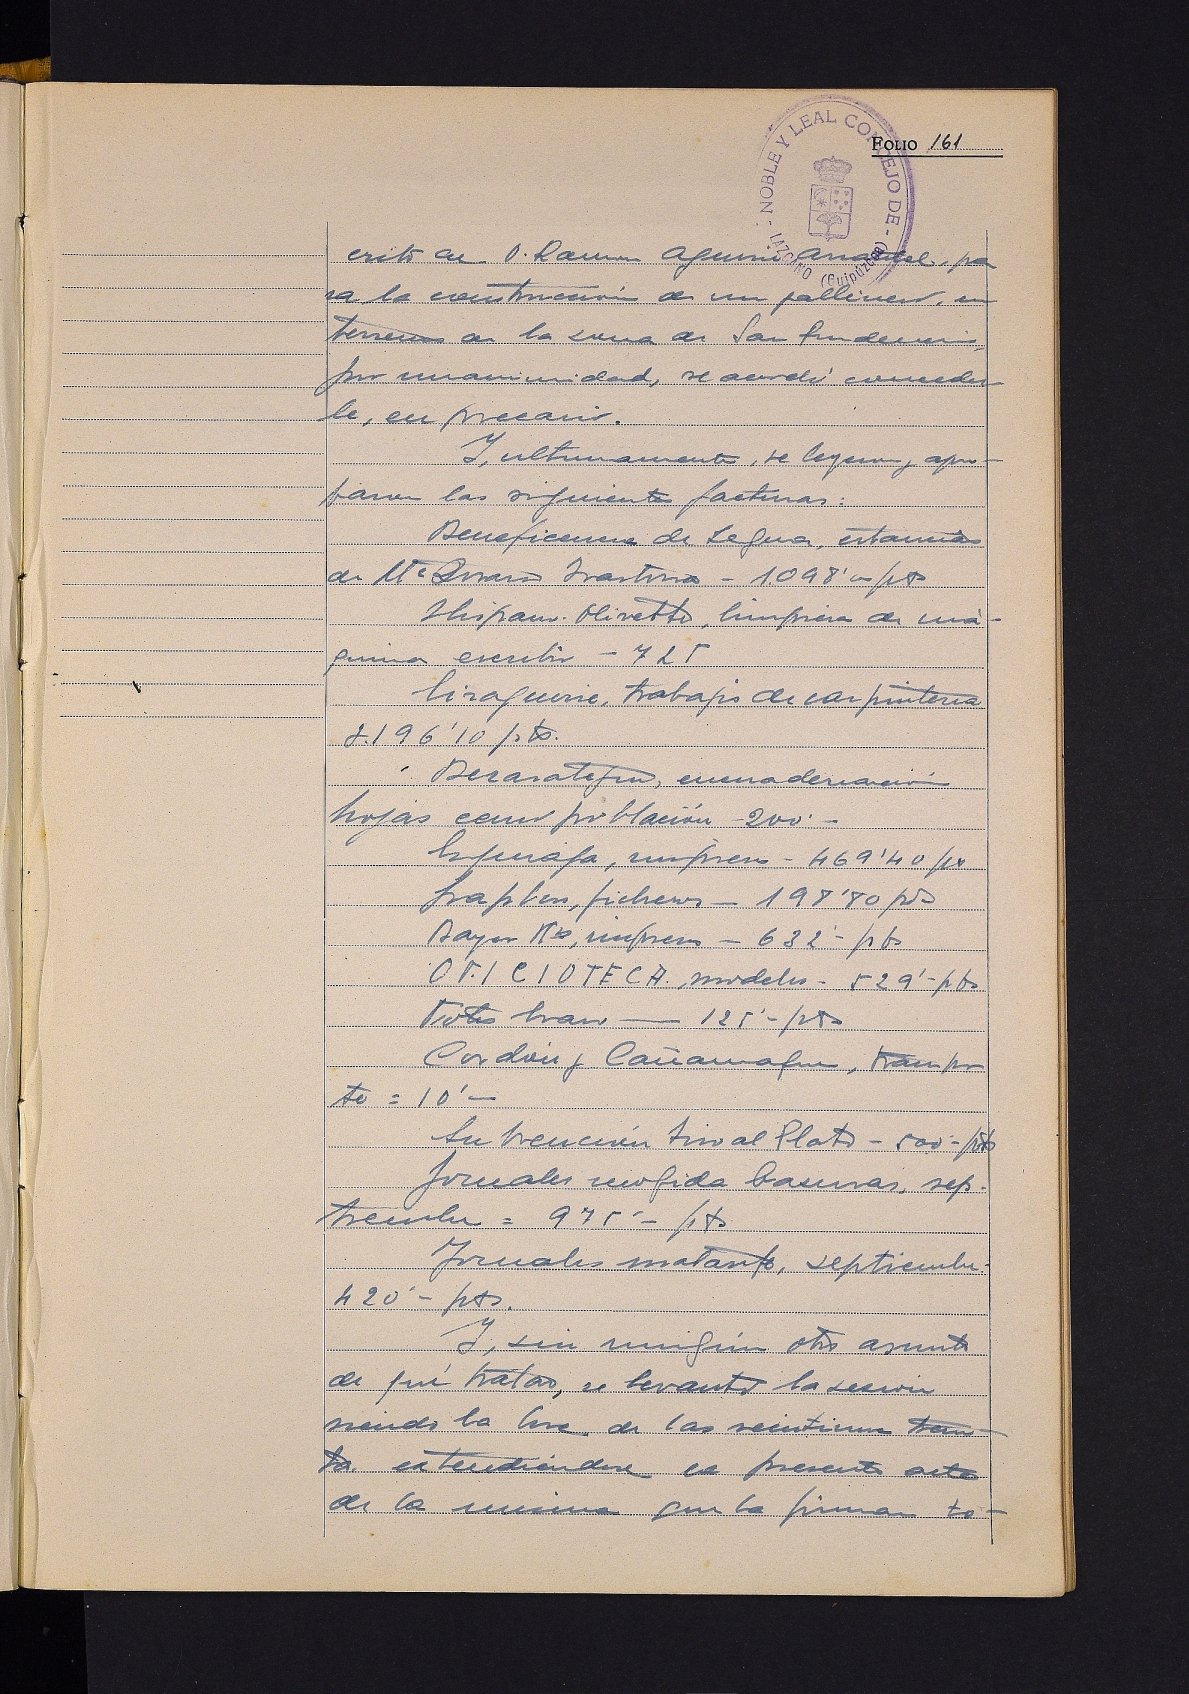 FOLIO 161
- NOBLE Y LEAL CONCEJO DE -
LAZCANO (Guipúzcoa)
crito de D. Ramon Aguirre, pa
ra la construcción de un gallinero, en
terrenos de la zona de San Prudencio,
por unanimidad, se acordó conceder-
le, en precario.
Y, ultimamente, se leyeron y apro-
baron las siguientes facturas:
Beneficencia de Segura, estancias
de Mª - 1.098'- pts
Hispano Olivetti, limpieza de má-
quina escribir - 725
trabajos de carpinteria
2.196'10 pts.
Berasategui, encuadernación
hojas censo población - 200'-
impresos - 469'40 pts
ficheros - 198'80 pts
Bayon Hos, impresos - 632'- pts
OFICIOTECA, modelos - 529'- pts
Fotos - 125'- pts
Cordón y Cañamaque, transpor
te = 10'-
Subvención Tiro al Plato - 500'- pts
Jornales recogida basuras, sep-
tiembre = 975'- pts
Jornales matarife, septiembre-
420'- pts.
Y, sin ningún otro asunto
de qué tratar, se levantó la sesión
siendo la hora de las veintiuna trein-
ta extendiéndose la presente acta
de la misma que la firman to-